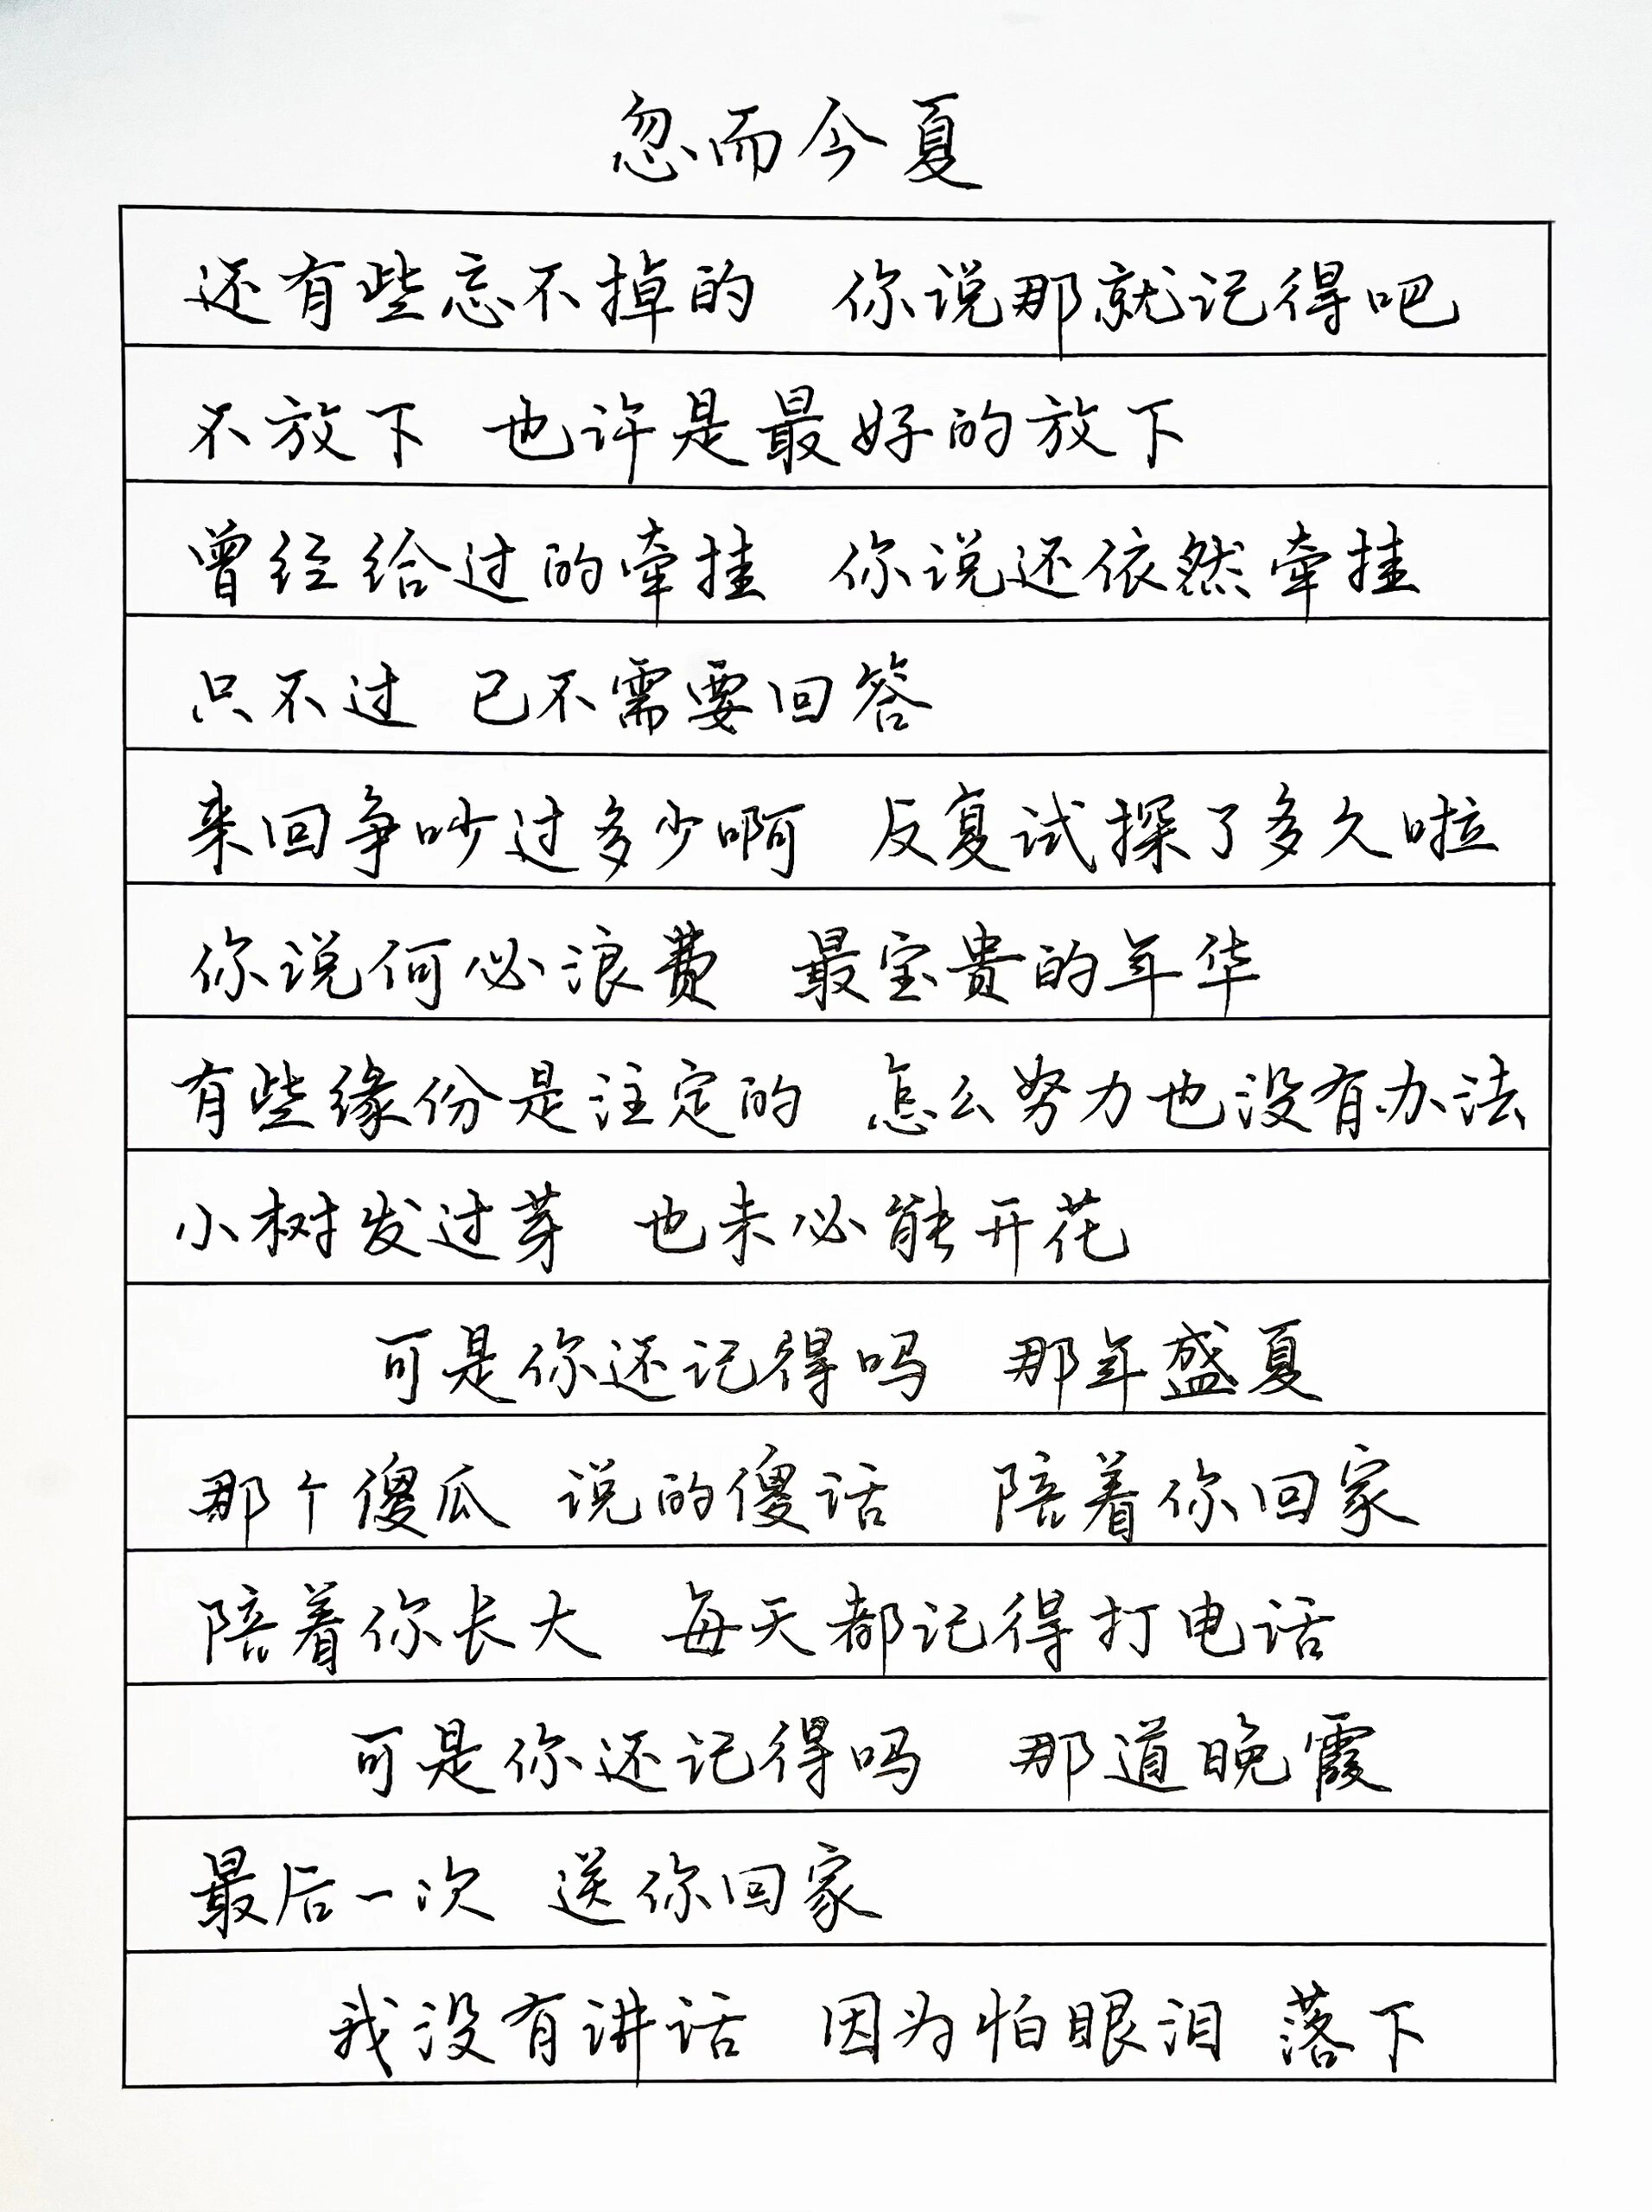 忽而今夏
还有些忘不掉的 你说那就记得吧
不放下 也许是最好的放下
曾经给过的牵挂 你说还依然牵挂
只不过 已不需要回答
来回争吵过多少啊 反复试探了多久啦
你说何必浪费 最宝贵的年华
有些缘份是注定的 怎么努力也没有办法
小树发过芽 也未必能开花
可是你还记得吗 那年盛夏
那个傻瓜 说的傻话 陪着你回家
陪着你长大 每天都记得打电话
可是你还记得吗 那道晚霞
最后一次 送你回家
我没有讲话 因为怕眼泪 落下